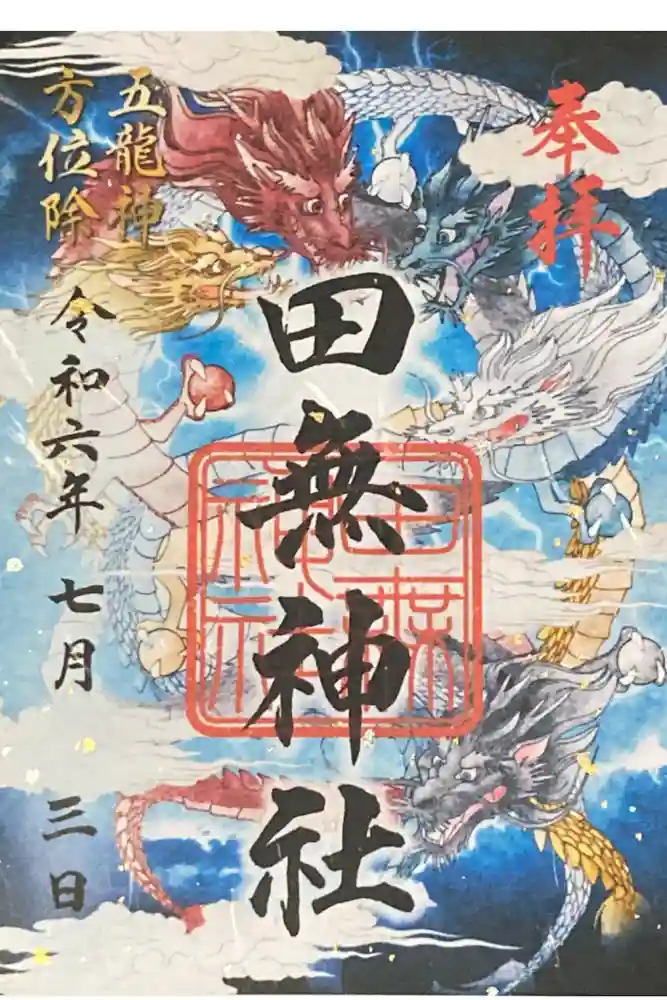 奉拝
田無神社
田無神社
五龍神
方位除
令和六年 七月 三日